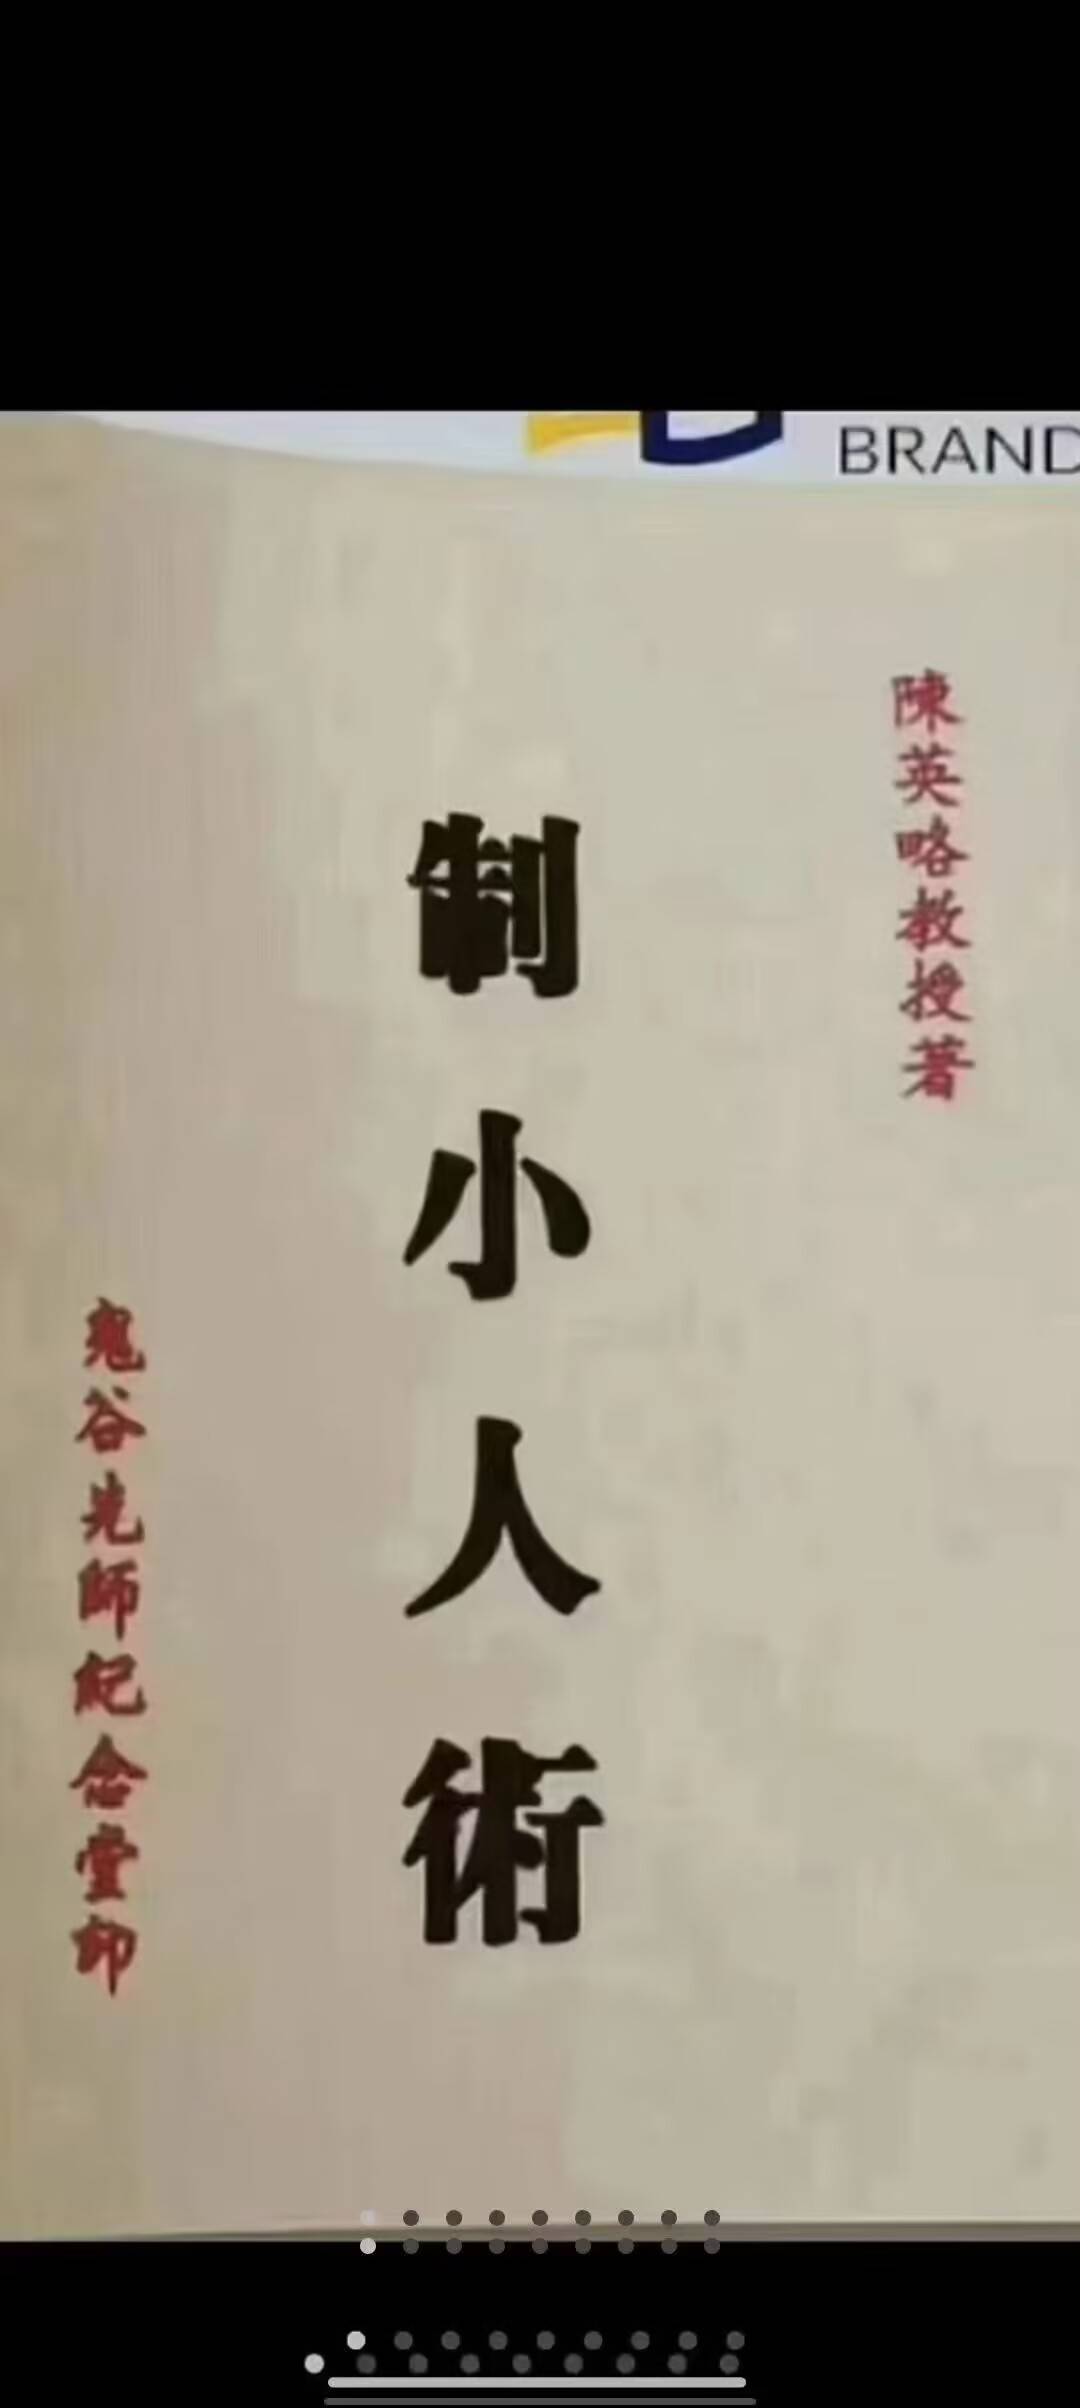 BRAND
陳英略教授著
制小人術
鬼谷先師紀念堂印